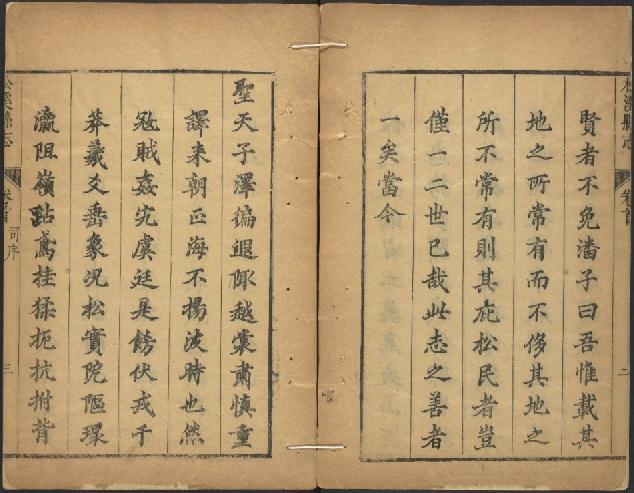 松溪縣志
卷首
二
賢者不免潘子曰吾惟載其
地之所常有而不侈其地之
所不常有則其庇松民者豈
僅一二世已哉此志之善者
一矣當今
聖天子澤徧遐陬越裳肅慎重
譯来朝正海不揚波時也然
冦賊姦宄虞廷是飭伏戎于
莽羲爻垂象況松實阨陋環
瀛阻嶺跕鳶桂猱扼抗拊背
松溪縣志
卷首
司序
三